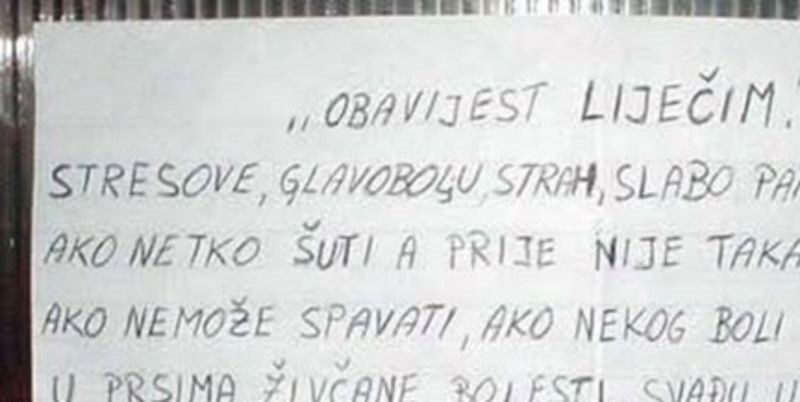 „OBAVIJEST LIJEČIM."
STRESOVE, GLAVOBOLJU, STRAH, SLABO
AKO NETKO ŠUTI A PRIJE NIJE TAKA
AKO NEMOŽE SPAVATI, AKO NEKOG BOLI
U PRSIMA ŽIVČANE BOLESTI SVAĐU U